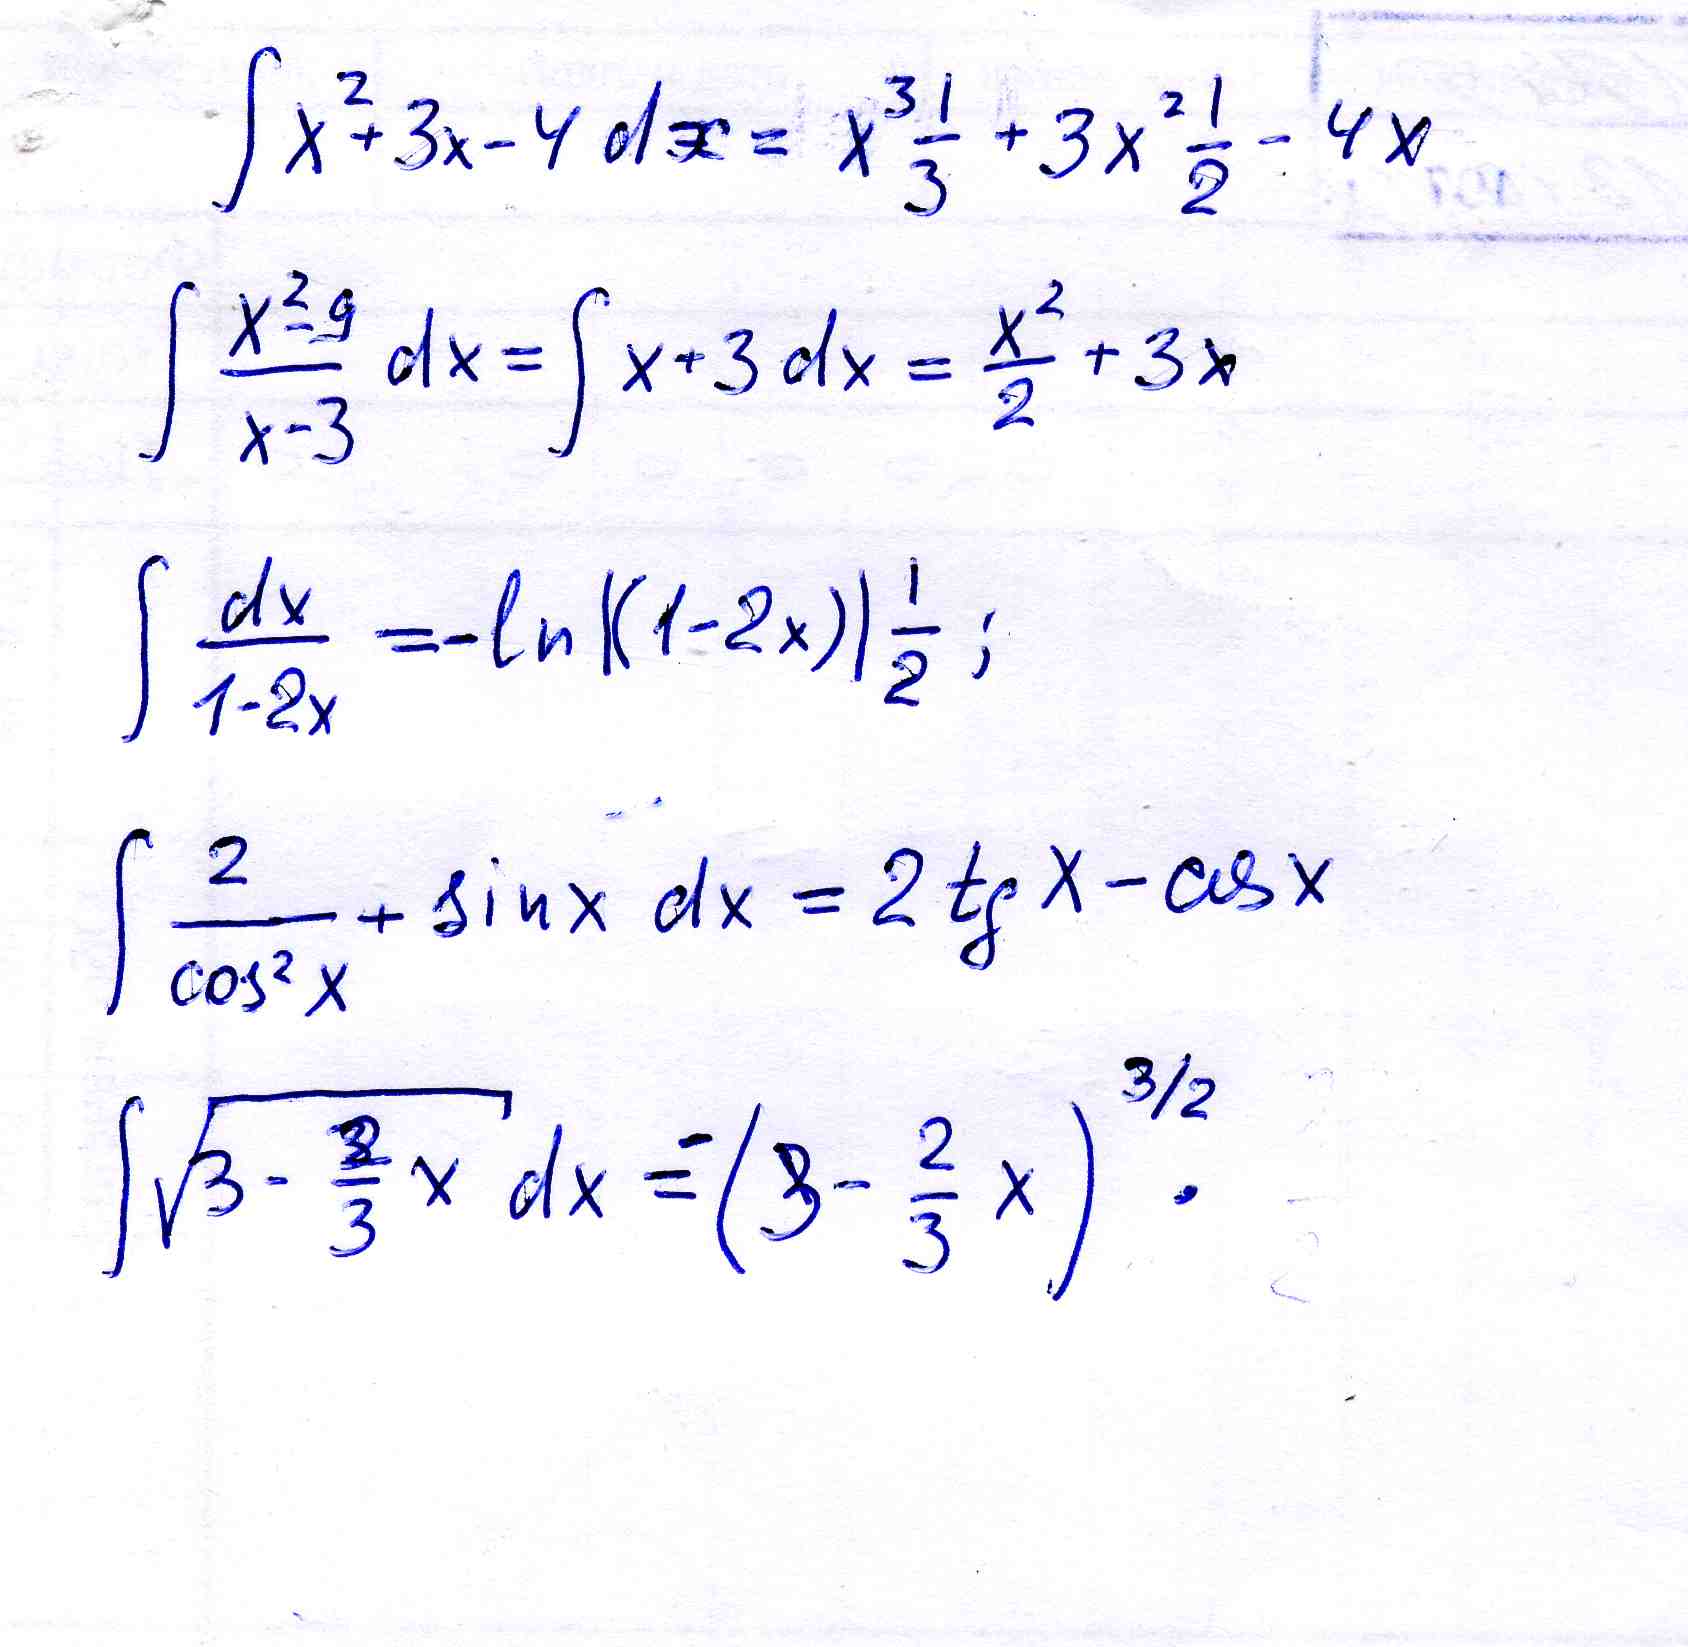 ∫ x² + 3x - 4 dx = x³ 1/3 + 3x² 1/2 - 4x
∫ (x² - 9)/(x - 3) dx = ∫ x + 3 dx = x²/2 + 3x
∫ dx/(1 - 2x) = - ln |(1 - 2x)| 1/2 ;
∫ 2/cos² x + sin x dx = 2 tg x - cos x
∫ √(3 - 2/3 x) dx = - (3 - 2/3 x)^3/2 ·